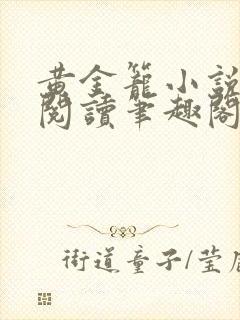 黃金籠小說
閱讀筆趣閣
街道童子/莹